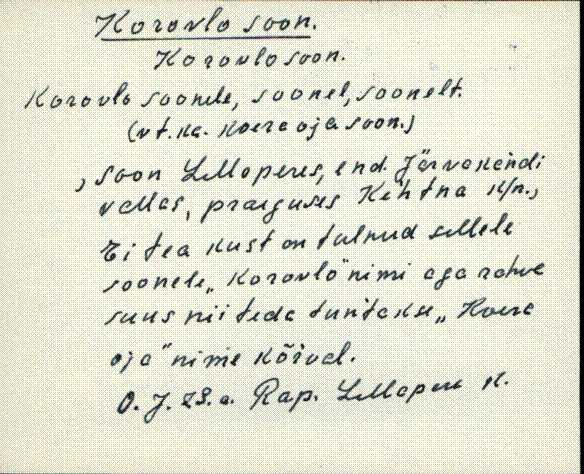 Korovlo soon.
Korovlo soon.
Korovlo soonele, soonel, soonelt.
(vt. ka. Koera oja soon.)
, soon Lellaperes, end. Järvakandi
vallas, praeguses Kehtna k/n.,
Ei tea kust on tulnud sellele
soonele „Korovlo" nimi aga rahva
suus niiteda tuntakse „Koera
oja" nime kõrval.
O. J. 28. a. Rap. Lellapere k.